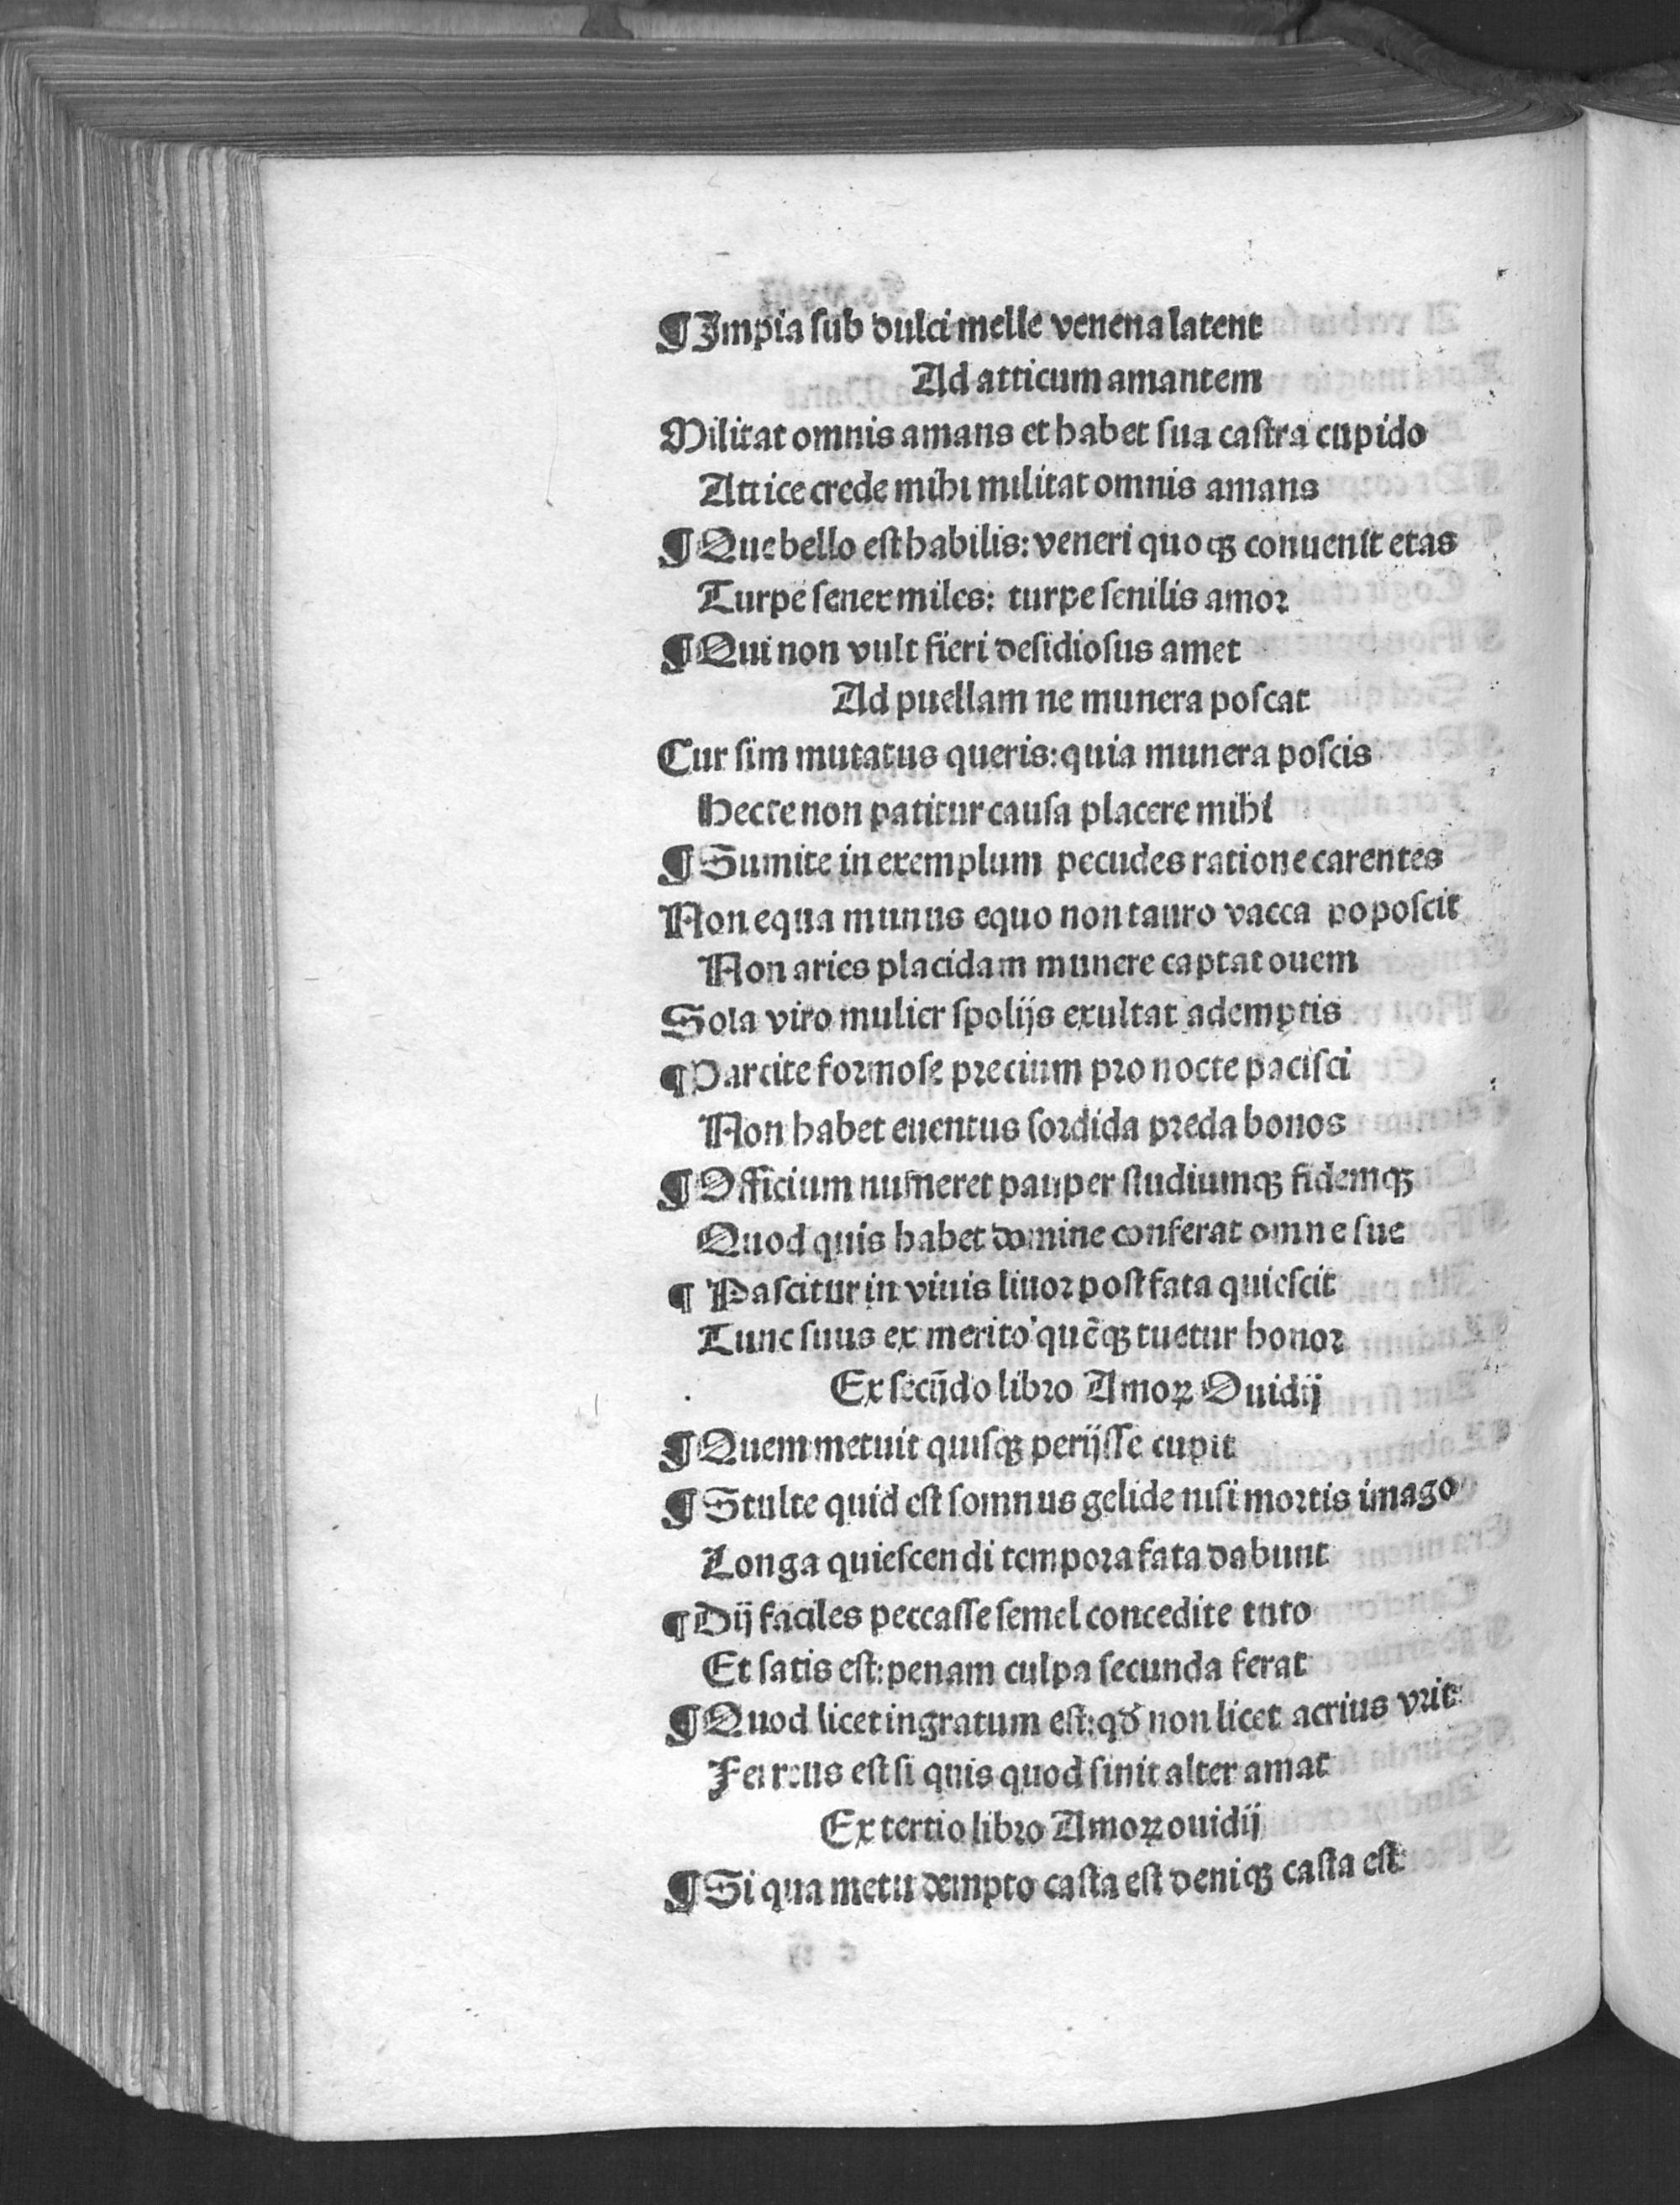 ¶ Impia sub dulci melle venena latent
Ad atticum amantem
Militat omnis amans et habet sua castra cupido
Attice crede mihi militat omnis amans
¶ Que bello est habilis: veneri quoqꝫ conuenit etas
Turpe senex miles: turpe senilis amor
¶ Qui non vult fieri desidiosus amet
Ad puellam ne munera poscat
Cur sim mutatus queris: quia munera poscis
Hec te non patitur causa placere mihi
¶ Sumite in exemplum pecudes ratione carentes
Non equa munus equo non tauro vacca poposcit
Non aries placidam munere captat ouem
Sola viro mulier spolijs exultat ademptis
¶ Parcite formose precium pro nocte pacisci
Non habet euentus sordida preda bonos
¶ Officium numeret pauper studiumqꝫ fidemqꝫ
Quod quis habet domine conferat omne sue
¶ Pascitur in viuis liuor post fata quiescit
Tunc suus ex merito quẽqꝫ tuetur honor
Ex secũdo libro Amoꝝ Ouidij
¶ Quem metuit quisqꝫ perijsse cupit
¶ Stulte quid est somnus gelide nisi mortis imago
Longa quiescendi tempora fata dabunt
¶ Dij faciles peccasse semel concedite tuto
Et satis est: penam culpa secunda ferat
¶ Quod licet ingratum est: qđ non licet acrius vrit
Ferreus est si quis quod sinit alter amat
Ex tertio libro Amoꝝ ouidij
¶ Si qua metu dempto casta est deniqꝫ casta est